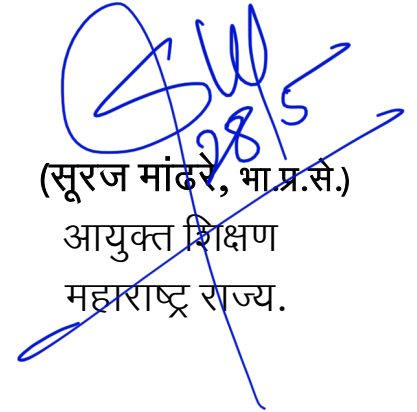 28/5
(सूरज मांढरे, भा.प्र.से.)
आयुक्त शिक्षण
महाराष्ट्र राज्य.